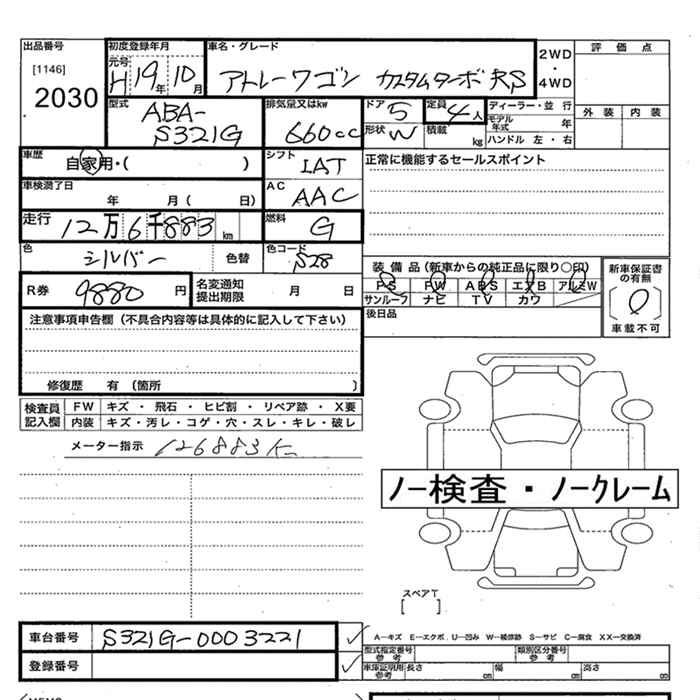 出品番号 初度登録年月 車名・グレード 2WD 評価点
[1146] 元号
2030 H19年10月 アトレーワゴン カスタムターボRS ・ 4WD
型式 排気量又はkw ドア 定員 ディーラー・並行 外装 内装
ABA- 5 4人 モデル年式 年
S321G 660cc 形状 W 積載 kg ハンドル 左・右
車歴 シフト 正常に機能するセールスポイント
自家用・( ) IAT
車検満了日 AC
年 月( 日) AAC
走行 12万6千883km 燃料 G
色 シルバー 色替 色コード S28
装備品(新車からの純正品に限り○印) 新車保証書の有無
R券 9880円 名変通知提出期限 月 日 PS PW ABS エアB アルミW
サンルーフ ナビ TV カワ
車載不可
注意事項申告欄(不具合内容等は具体的に記入して下さい) 後日品
修復歴 有(箇所 )
検査員 FW キズ・飛石・ヒビ割・リペア跡・X要
記入欄 内装 キズ・汚レ・コゲ・穴・スレ・キレ・破レ
メーター指示 126883K
ノー検査・ノークレーム
スペアT
[ ]
車台番号 S321G-0003221 A-キズ E-エクボ U-凹み W-補修跡 S-サビ C-腐食 XX-交換済
型式指定番号 参考 類別区分番号 参考
登録番号 車庫証明用 参考 長さ cm 幅 cm 高さ cm